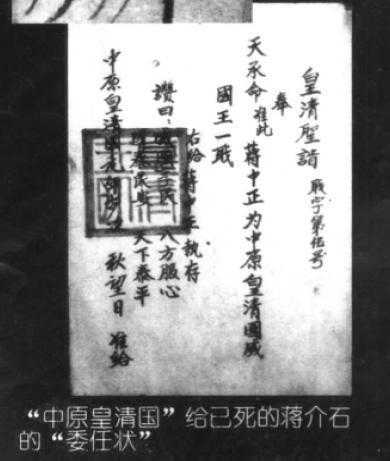 皇清聖
职字第伍号
奉
天承命准此 蒋中正为中原皇清國威
國王一职
右给蒋中正执存
讚曰： 民 八方服心
民 天下泰平
中原皇清國元 秋望日 准给
“中原皇清国”给已死的蒋介石
的“委任状”